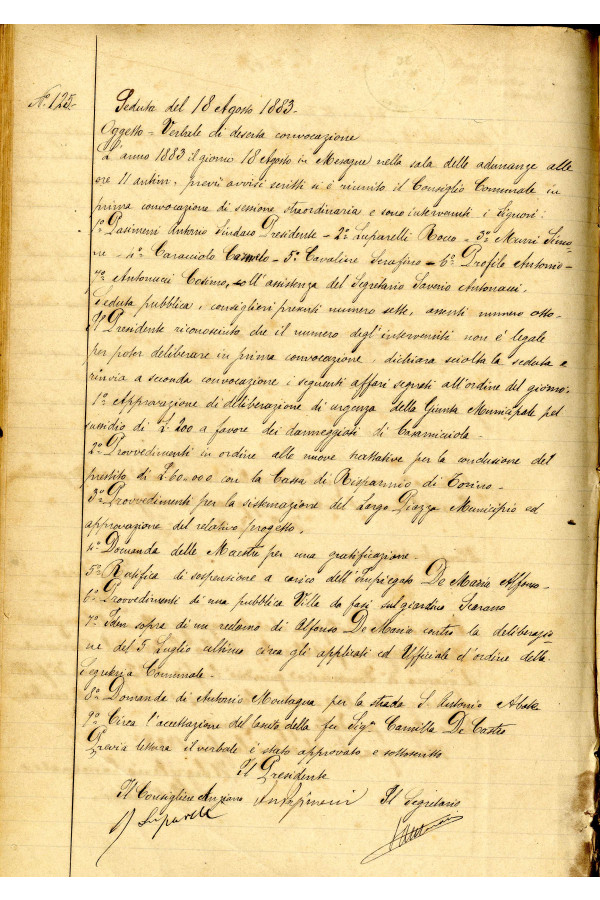 N.° 125
Seduta del 18 Agosto 1883.
Oggetto = Verbale di deserta convocazione
L'anno 1883 il giorno 18 Agosto in Mesagne nella sala delle adunanze alle
ore 11 antim. previi avvisi scritti si è riunito il Consiglio Comunale in
prima convocazione di sessione straordinaria e sono intervenuti i Signori:
1° Pasimeni Antonio Sindaco Presidente - 2° Luparelli Rocco - 3° Murri Simo-
ne - 4° Caracciolo Carmelo - 5° Cavaliere Serafino - 6° Profilo Antonio -
7° Antonucci Cosimo, coll'assistenza del Segretario Saverio Antonucci.
Seduta pubblica, consiglieri presenti numero sette, assenti numero otto.
Il Presidente riconosciuto che il numero degl'intervenuti non è legale
per poter deliberare in prima convocazione, dichiara sciolta la seduta e
rinvia a seconda convocazione i seguenti affari segnati all'ordine del giorno.
1° Approvazione di deliberazione di urgenza della Giunta Municipale pel
sussidio di £ 200 a favore dei danneggiati di Casamicciola -
2° Provvedimenti in ordine alle nuove trattative per la conclusione del
prestito di £ 60.000 con la Cassa di Risparmio di Torino -
3° Provvedimenti per la sistemazione del Largo Piazza Municipio ed
approvazione del relativo progetto.
4° Domanda delle Maestre per una gratificazione -
5° Ratifica di sospensione a carico dell'Impiegato De Maria Alfonso -
6° Provvedimenti di una pubblica Villa da farsi sul giardino Scarano
7° Idem sopra di un reclamo di Alfonso De Maria contro la deliberazio-
ne del 5 Luglio ultimo circa gli applicati ed Ufficiale d'ordine della
Segreteria Comunale -
8° Domanda di Antonio Montagna per la strada S. Antonio Abate
9° Circa l'accettazione del lascito della fu Sig.ra Camilla De Castro
Previa lettura il verbale è stato approvato e sottoscritto
Il Presidente
Il Consigliere Anziano Il Segretario
Luparelli